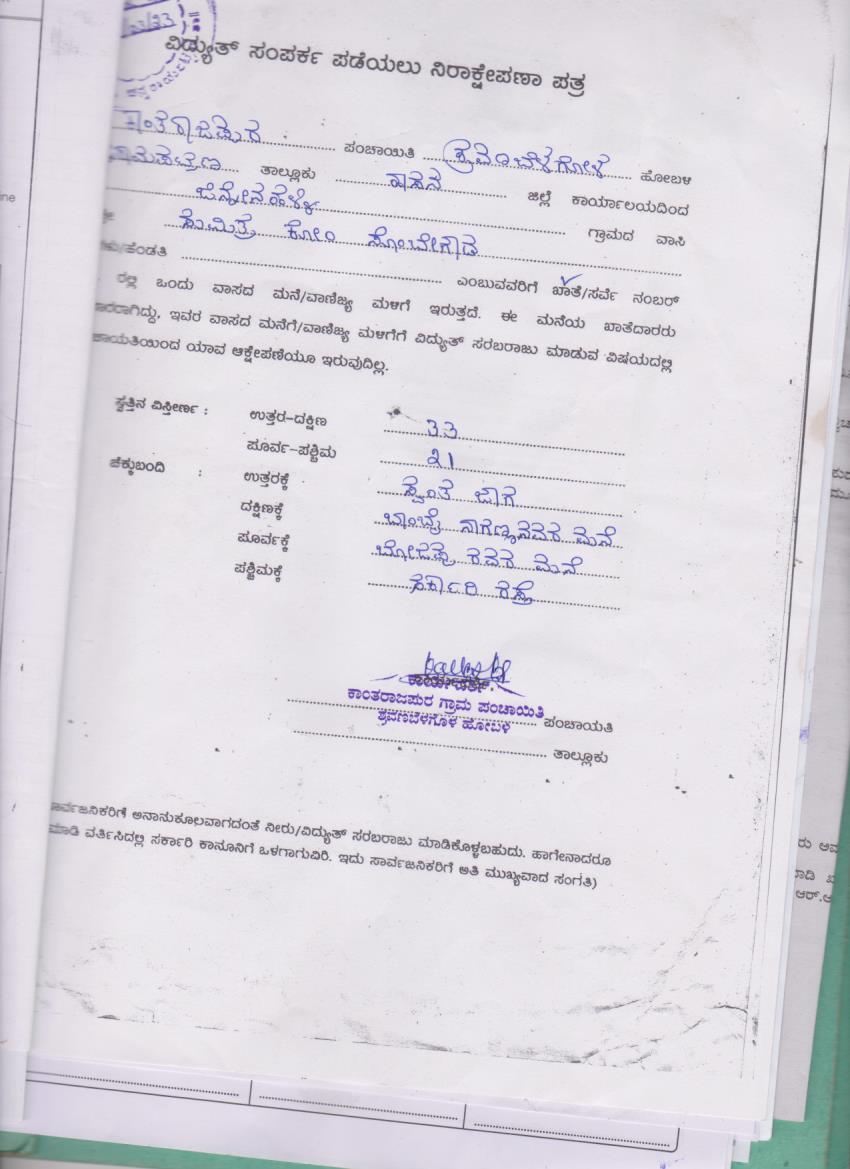 ವಿದ್ಯುತ್ ಸಂಪರ್ಕ ಪಡೆಯಲು ನಿರಾಕ್ಷೇಪಣಾ ಪತ್ರ
ಕಾಂತರಾಜಪುರ ಪಂಚಾಯಿತಿ ಶ್ರವಣಬೆಳಗೋಳ ಹೋಬಳಿ
ತಾಲ್ಲೂಕು ಹಾಸನ ಜಿಲ್ಲೆ ಕಾರ್ಯಾಲಯದಿಂದ
ಗ್ರಾಮದ ವಾಸಿ
ಸುಮಿತ್ರ ಕೋಂ ಸೋಂಬೇಗೌಡ
ಹೆಂಡತಿ ಎಂಬುವವರಿಗೆ ಖಾತೆ/ಸರ್ವೆ ನಂಬರ್
ರಲ್ಲಿ ಒಂದು ವಾಸದ ಮನೆ/ವಾಣಿಜ್ಯ ಮಳಿಗೆ ಇರುತ್ತದೆ. ಈ ಮನೆಯ ಖಾತೆದಾರರು
ಇವರ ವಾಸದ ಮನೆಗೆ/ವಾಣಿಜ್ಯ ಮಳಿಗೆಗೆ ವಿದ್ಯುತ್ ಸರಬರಾಜು ಮಾಡುವ ವಿಷಯದಲ್ಲಿ
ಯಾವ ಆಕ್ಷೇಪಣೆಯೂ ಇರುವುದಿಲ್ಲ.
ಸ್ವತ್ತಿನ ವಿಸ್ತೀರ್ಣ : ಉತ್ತರ-ದಕ್ಷಿಣ 33
ಪೂರ್ವ-ಪಶ್ಚಿಮ 21
ಚೆಕ್ಕುಬಂದಿ : ಉತ್ತರಕ್ಕೆ ಸ್ವಂತ ಜಾಗ
ದಕ್ಷಿಣಕ್ಕೆ ಬಾಂಬೈ ನಾಗಣ್ಣನವರ ಮನೆ
ಪೂರ್ವಕ್ಕೆ ಬೋಜಪ್ಪ ರವರ ಮನೆ
ಪಶ್ಚಿಮಕ್ಕೆ ಸರ್ಕಾರಿ ರಸ್ತೆ
ಕಾಂತರಾಜಪುರ ಗ್ರಾಮ ಪಂಚಾಯಿತಿ
ಶ್ರವಣಬೆಳಗೊಳ ಹೋಬಳಿ ಪಂಚಾಯತಿ
ತಾಲ್ಲೂಕು
ಅನಾನುಕೂಲವಾಗದಂತೆ ನೀರು/ವಿದ್ಯುತ್ ಸರಬರಾಜು ಮಾಡಿಕೊಳ್ಳಬಹುದು. ಹಾಗೇನಾದರೂ
ಮಾಡಿ ವರ್ತಿಸಿದಲ್ಲಿ ಸರ್ಕಾರಿ ಕಾನೂನಿಗೆ ಒಳಗಾಗುವಿರಿ. ಇದು ಸಾರ್ವಜನಿಕರಿಗೆ ಅತಿ ಮುಖ್ಯವಾದ ಸಂಗತಿ)